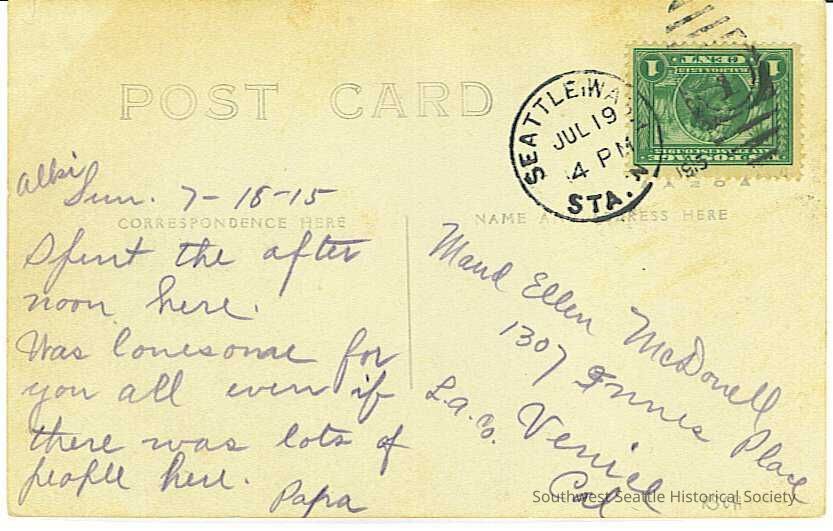 POST CARD
SEATTLE, WASH.
JUL 19
4 PM
1915
STA.
1 CENT 1
Alki
Sun. 7-18-15
CORRESPONDENCE HERE
NAME AND ADDRESS HERE
Spent the after
noon here.
Was lonesome for
you all even if
there was lots of
people here.
Papa
Maud Ellen McDonell
1307 Innes Place
Venice
Cal
Southwest Seattle Historical Society